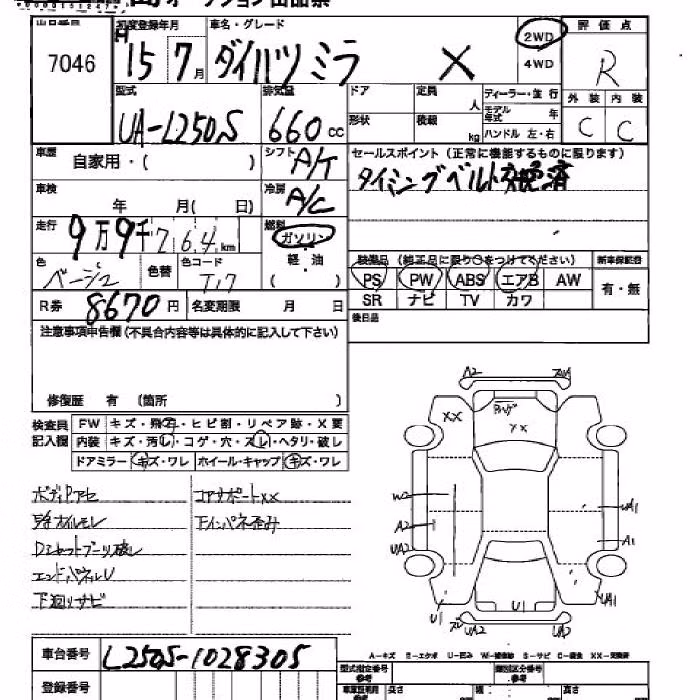 オークション出品票
出品番号 初度登録年月 車名・グレード 2WD 評価点
7046 H 15 7月 ダイハツ ミラ X 4WD R
型式 排気量 ドア 定員 人 ディーラー・並行 外装 内装
UA-L250S 660 cc 形状 積載 kg モデル年式 年 C C
ハンドル 左・右
車歴 自家用・( ) シフト A/T セールスポイント (正常に機能するものに限ります)
タイミングベルト交換済
車検 年 月( 日) 冷房 A/C
走行 9万9千7 6.4 km 燃料 ガソリン
軽・油
( )
色 ベージュ 色替 色コード T17
装備品 (純正品に限り○をつけてください) 新車保証書
PS PW ABS エアB AW 有・無
SR ナビ TV カワ
R券 8670円 名変期限 月 日
後日品
注意事項申告欄 (不具合内容等は具体的に記入して下さい)
修復歴 有 (箇所 )
検査員記入欄 FW キズ・飛石・ヒビ割・リペア跡・X要
内装 キズ・汚レ・コゲ・穴・スレ・ヘタリ・破レ
ドアミラー キズ・ワレ ホイール・キャップ キズ・ワレ
ボディPアセ コアサポートXX
オイルモレ インパネ歪み
Dシャフトブーツ破レ
エンドパネルU
下廻りサビ
A2
XX
XX
W2
A2
UA2
UA1
A1
U1
U1
UA2
UA2
UA1
A-キズ E-エクボ U-凹ミ W-補修跡 S-サビ C-腐食 XX-交換済
車台番号 L250S-1028305
登録番号
型式指定番号 類別区分番号
長さ 幅 高さ